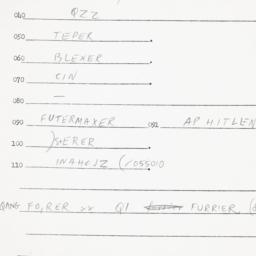 040 QZZ
050 TEPER
060 BLEXER
070 CIN
080 —
090 FUTERMAXER 091 AP HITLEN
100 )SERER
110 INAHEJZ (/055010
FO,RER >> QI FURRIER